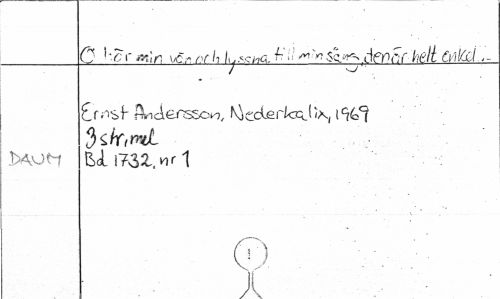 O hör min vän och lyssna till min sång, den är helt enkel...
Ernst Andersson, Nederkalix, 1969
3 str, mel
DAUM Bd 1732, nr 1